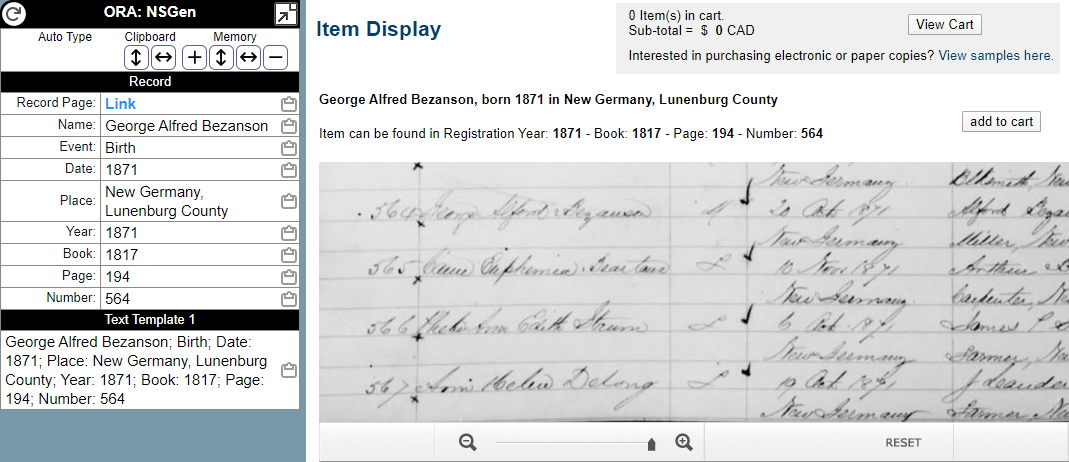 ORA: NSGen
Auto Type Clipboard Memory
Record
Record Page: Link
Name: George Alfred Bezanson
Event: Birth
Date: 1871
Place: New Germany,
Lunenburg County
Year: 1871
Book: 1817
Page: 194
Number: 564
Text Template 1
George Alfred Bezanson; Birth; Date:
1871; Place: New Germany, Lunenburg
County; Year: 1871; Book: 1817; Page:
194; Number: 564
Item Display
0 Item(s) in cart.
Sub-total = $ 0 CAD
View Cart
Interested in purchasing electronic or paper copies? View samples here.
George Alfred Bezanson, born 1871 in New Germany, Lunenburg County
add to cart
Item can be found in Registration Year: 1871 - Book: 1817 - Page: 194 - Number: 564
New Germany
564 George Alford Bezanson M 20 Oct 1871 Alford
New Germany Miller, New
565 Euphemia 10 Nov 1871 Arthur
New Germany Carpenter, Ne
566 Ann Edith 6 Oct 1871 James
New Germany Farmer, New
567 Ann Helen Delong 10 Oct 1871 J Leander
New Germany Farmer New
RESET